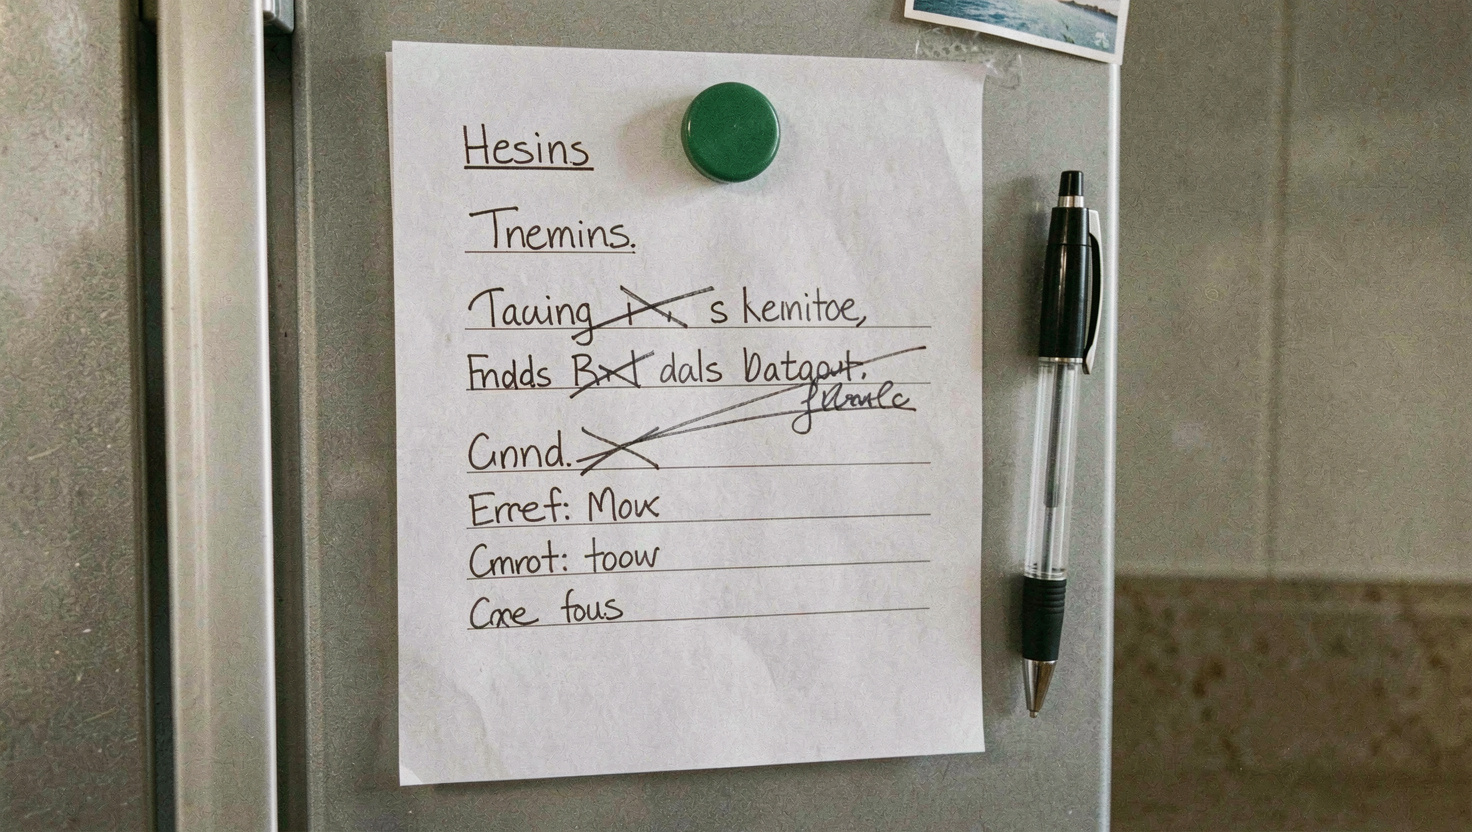 Hesins
Tnemins.
Tauing s kemitoe,
Fndds dals Datgout.
Gnnd.
Erref: Mouc
Cmrot: toow
Cxe fous